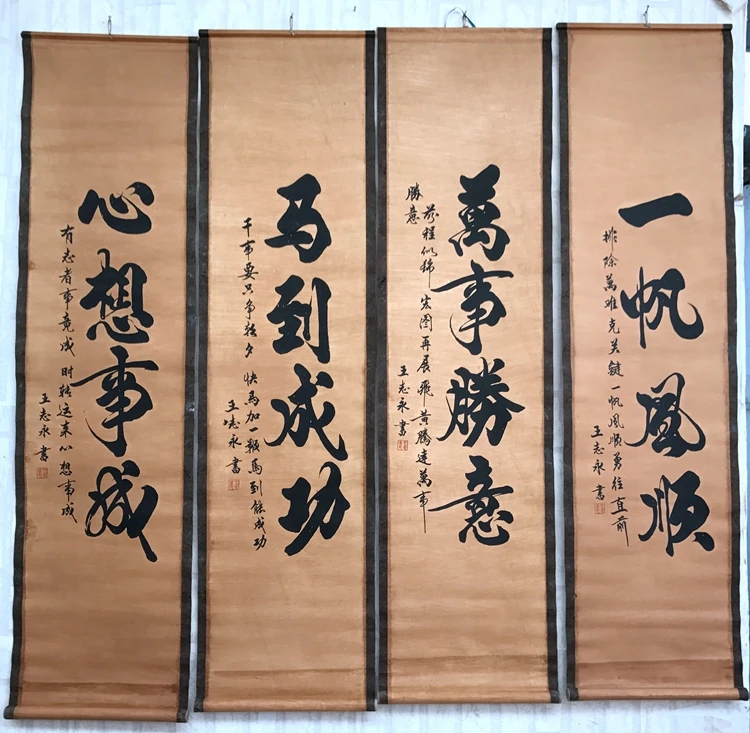 一帆風顺
排除萬难克关键一帆風顺勇往直前
王志永書
萬事勝意
前程似锦宏图再展飛黄腾達萬事
勝意
王志永書
马到成功
千事要只争朝夕快马加一鞭马到能成功
王志永書
心想事成
有志者事竟成时转运来心想事成
王志永書